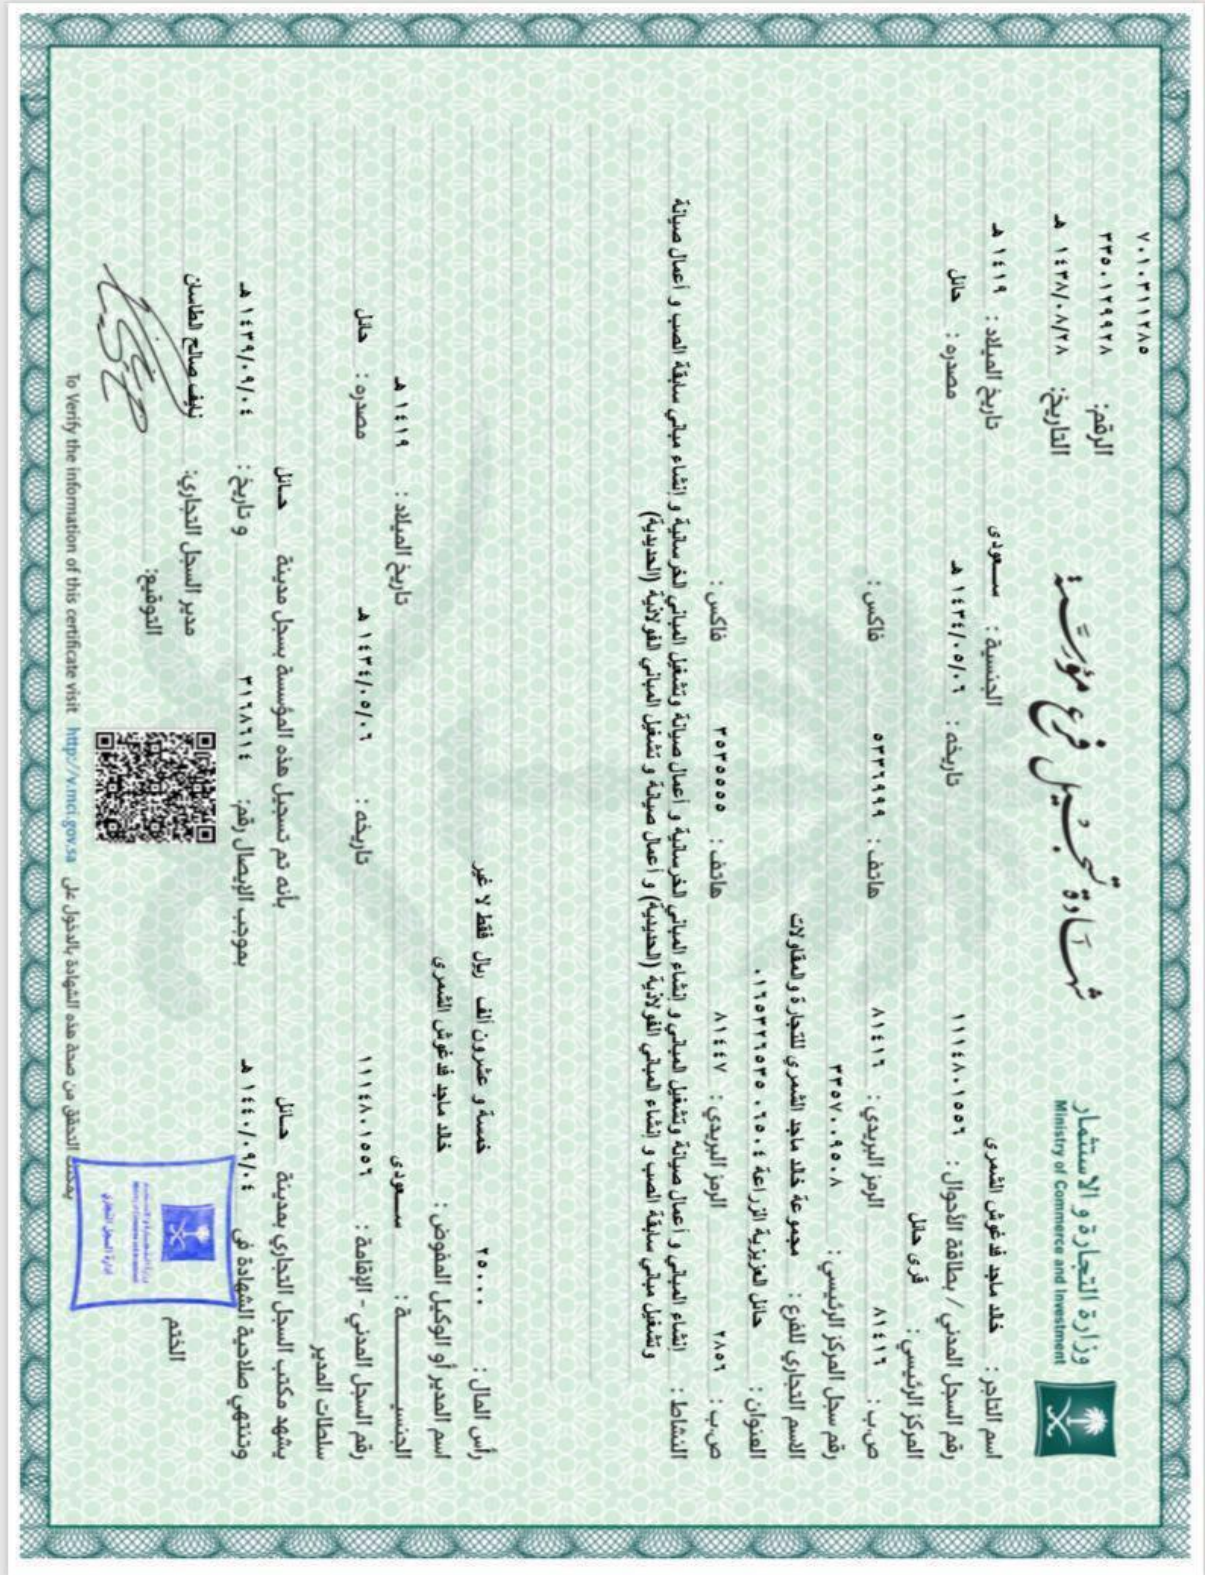 ٧٠١٠٣١١٢٨٥
وزارة التجارة والاستثمار
Ministry of Commerce and Investment
شهادة تسجيل فرع مؤسسة
الرقم: ٣٣٥٠١٢٩٩٢٨
التاريخ: ١٤٣٨/٠٨/٢٨ هـ
اسم التاجر : خلد ماجد فدغوش الشمرى الجنسية : سعودى تاريخ الميلاد : ١٤١٩ هـ
رقم السجل المدني / بطاقة الأحوال : ١١١٤٨٠١٥٥٦ تاريخه : ١٤٣٤/٠٥/٠٦ هـ مصدره : حائل
المركز الرئيسي : قرى حائل
ص.ب : ٨١٤١٦ الرمز البريدي : ٨١٤١٦ هاتف : ٥٣٣٦٩٩٩ فاكس :
رقم سجل المركز الرئيسي : ٣٣٥٧٠٠٩٥٠٨
الاسم التجاري للفرع : مجموعة خلد ماجد الشمري للتجارة والمقاولات
العنوان : حائل العزيزية الزراعة ٠١٦٥٣٢٦٥٣٥٠٦٥٠٤
ص.ب : ٢٨٥٦ الرمز البريدي : ٨١٤٤٧ هاتف : ٣٥٣٥٥٥٥ فاكس :
النشاط : انشاء المباني و أعمال صيانة وتشغيل المباني و إنشاء المباني الخرسانية و أعمال صيانة وتشغيل المباني الخرسانية و إنشاء مباني سابقة الصب و أعمال صيانة
وتشغيل مباني سابقة الصب و إنشاء المباني الفولاذية (الحديدية) و أعمال صيانة و تشغيل المباني الفولاذية (الحديدية)
رأس المال : ٢٥٠٠٠ خمسة و عشرون ألف ريال فقط لا غير
اسم المدير أو الوكيل المفوض : خلد ماجد فدغوش الشمرى
الجنسية : سعودى تاريخ الميلاد : ١٤١٩ هـ
رقم السجل المدني - الإقامة : ١١١٤٨٠١٥٥٦ تاريخه : ١٤٣٤/٠٥/٠٦ هـ مصدره : حائل
سلطات المدير
يشهد مكتب السجل التجاري بمدينة حائل بأنه تم تسجيل هذه المؤسسة بسجل مدينة حائل
وتنتهي صلاحية الشهادة فى ١٤٤٠/٠٩/٠٤ هـ بموجب الإيصال رقم: ٣١٦٨٦١٤ و تاريخ : ١٤٣٩/٠٩/٠٤ هـ
مدير السجل التجاري: نايف صالح الطاسان
الختم التوقيع:
إدارة السجل التجاري
يمكنك التحقق من صحة هذه الشهادة بالدخول على http://v.mci.gov.sa To Verify the information of this certificate visit